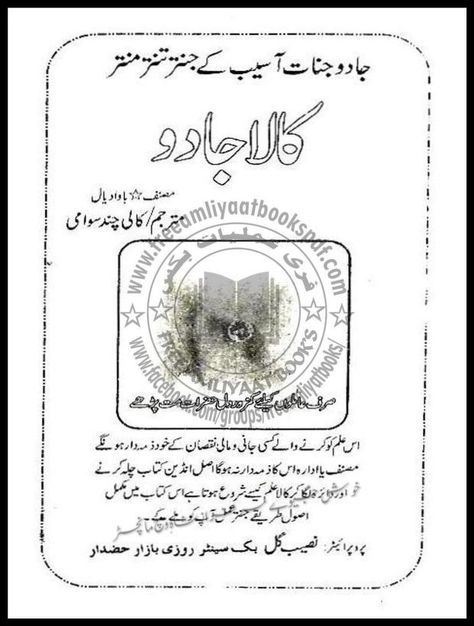 جادو جنات آسیب کے جنتر تنتر منتر
کالا جادو
مصنف ☆ باوا دیال
مترجم/کالی چند سوامی
www.freeamliyaatbookspdf.com
فری عملیات بکس
FREE AMLIYAAT BOOK'S
www.facebook.com/groups/freeamliyaatbooks/
صرف عاملوں کیلئے کمزور دل حضرات مت پڑھے
اس علم کو کرنے والے کسی جانی و مالی نقصان کے خود ذمہ دار ہونگے
مصنف یا ادارہ اس کا ذمہ دار نہ ہوگا اصل انڈین کتاب چلہ کرنے
اور دائرہ لگا کر کالا علم کیسے شروع ہوتا ہے اس کتاب میں مکمل
اصول طریقے جنتر آپ کو ملے گے۔
پروپرائیٹر: نصیب گل بک سینٹر روزی بازار حضدار